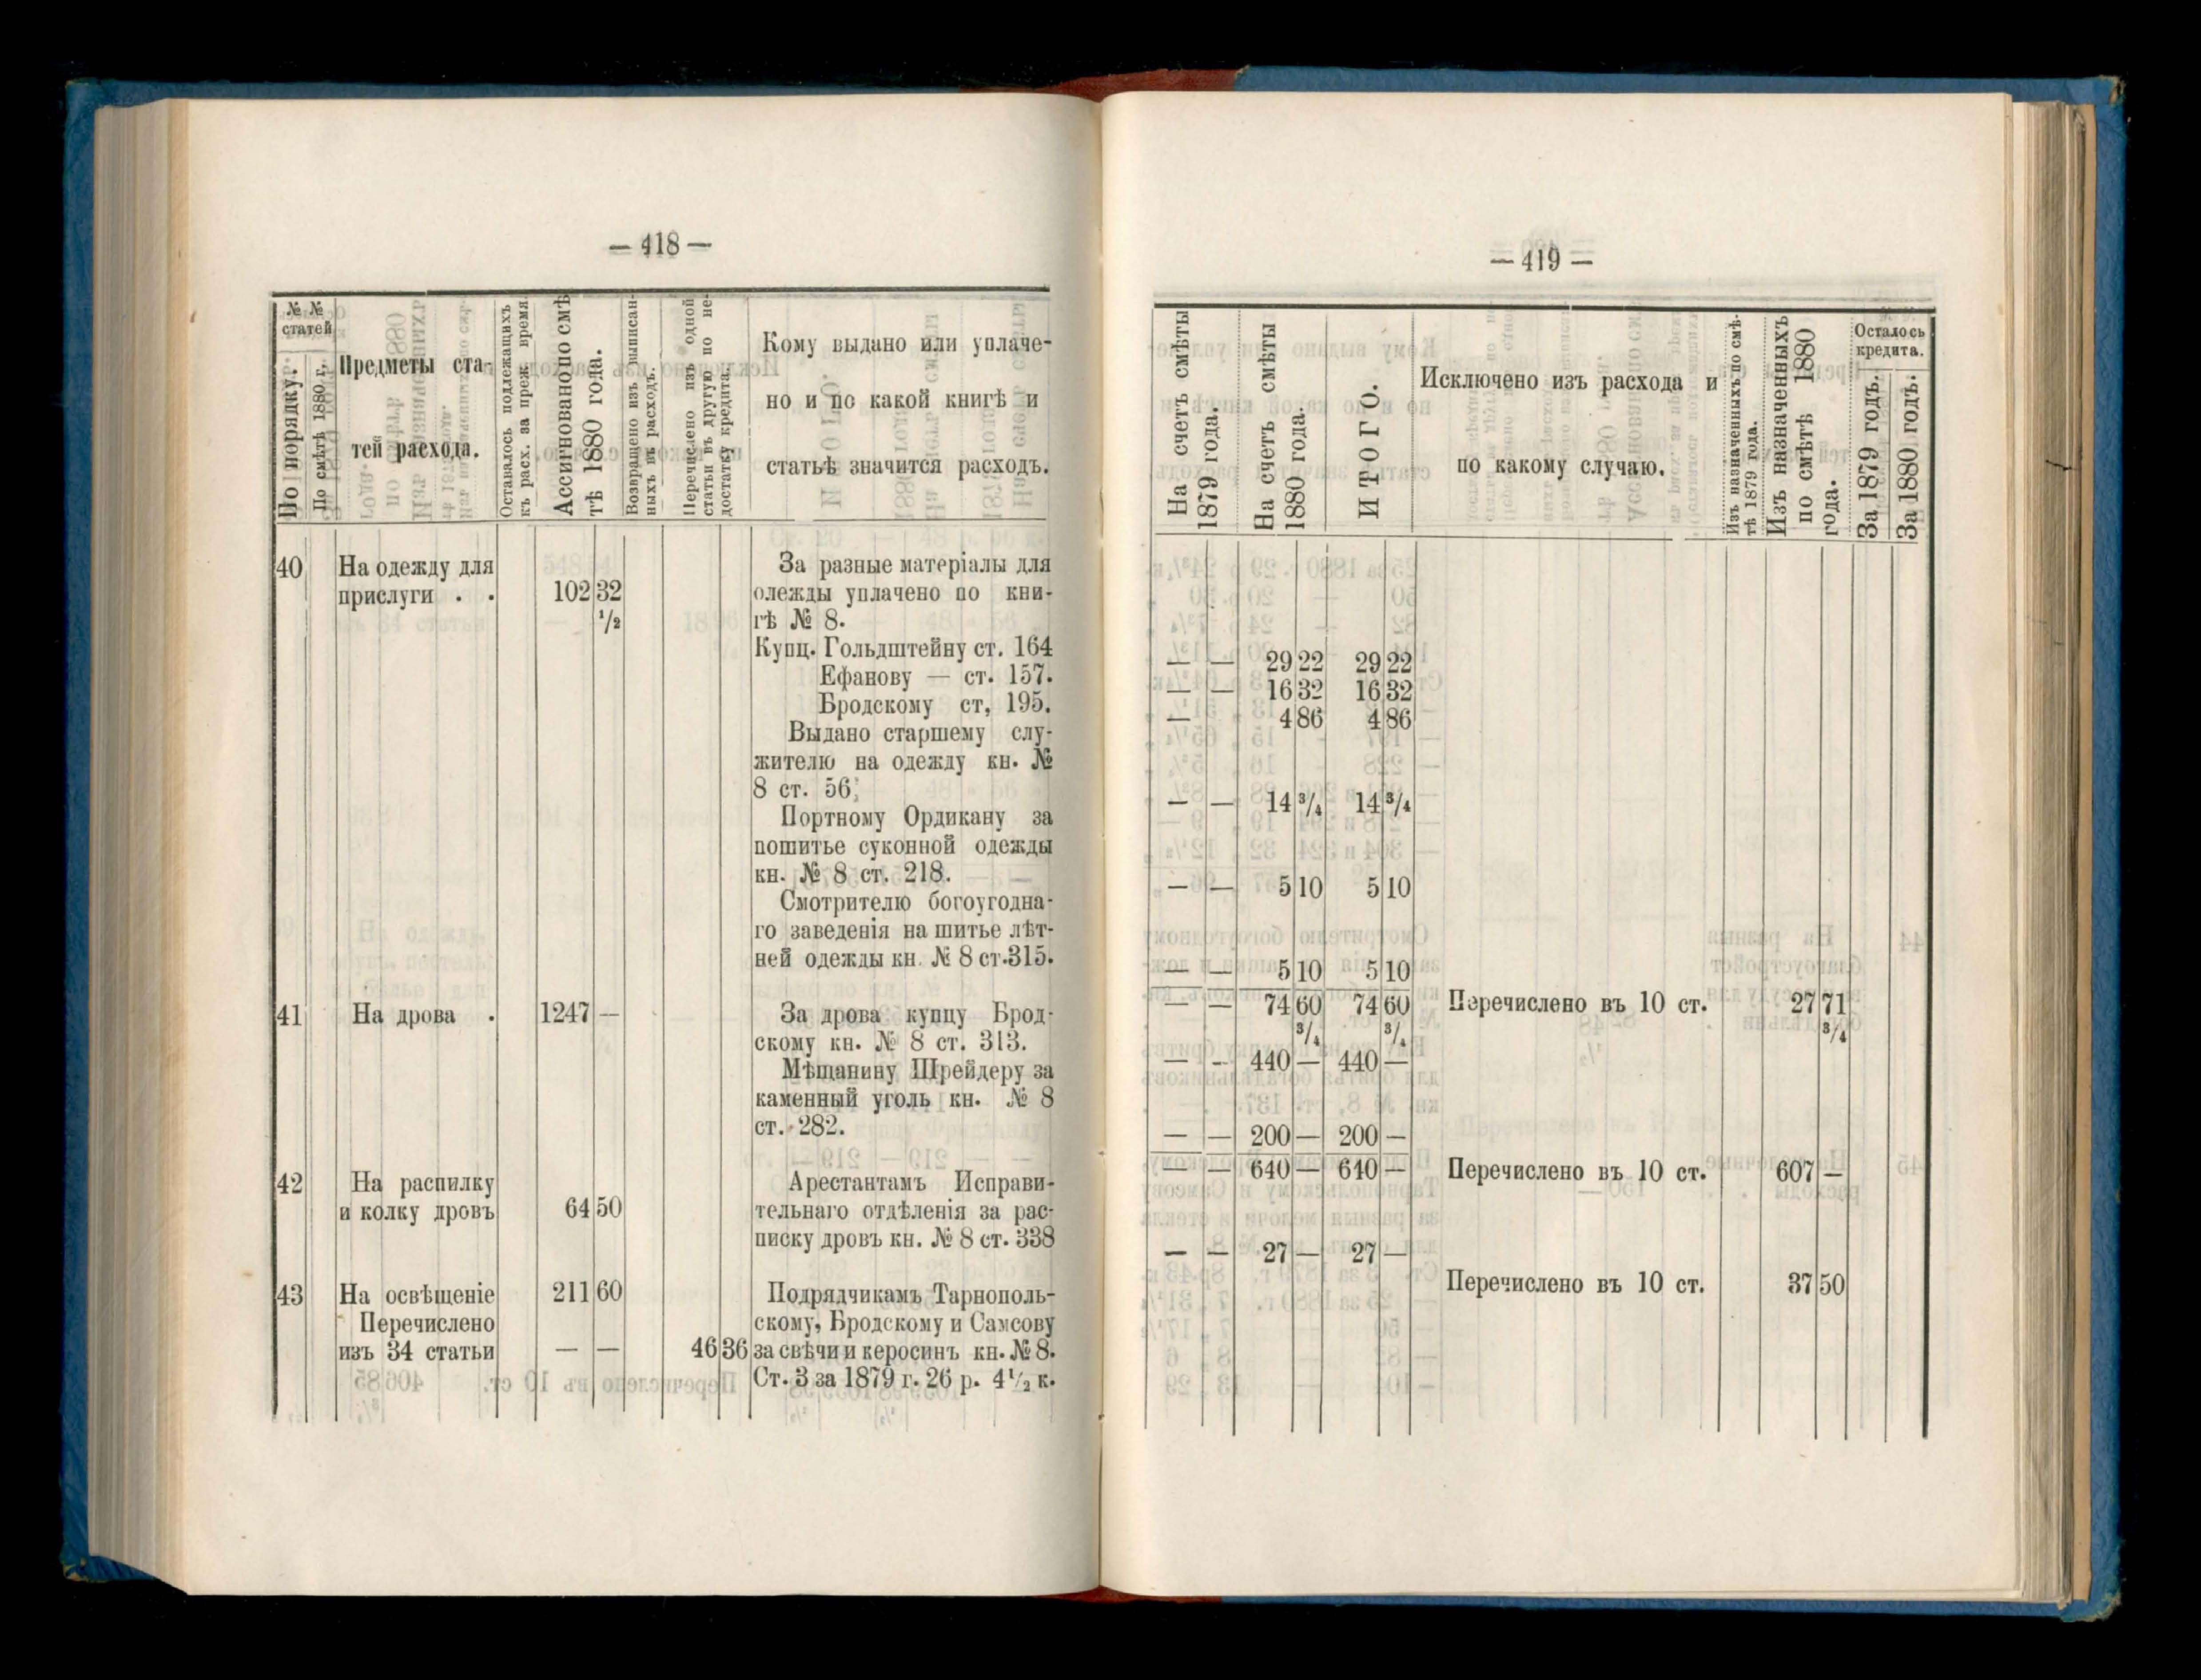 — 418 —
№ № статей
По порядку.
По смѣтѣ 1880 г.
Предметы ста-
тей расхода.
Оставалось подлежащихъ
къ расх. за преж. время.
Ассигновано по смѣ
тѣ 1880 года.
Возвращено изъ выписан-
ныхъ въ расходъ.
Перечислено изъ одной
статьи въ другую по не-
достатку кредита.
Кому выдано или уплаче-
но и по какой книгѣ и
статьѣ значится расходъ.
40 На одежду для За разные матеріалы для
прислуги . . 102 32 олежды уплачено по кни-
1/2 гѣ № 8.
Купц. Гольдштейну ст. 164
Ефанову — ст. 157.
Бродскому ст, 195.
Выдано старшему слу-
жителю на одежду кн. №
8 ст. 56;
Портному Ордикану за
пошитье суконной одежды
кн. № 8 ст. 218.
Смотрителю богоугодна-
го заведенія на шитье лѣт-
ней одежды кн. № 8 ст. 315.
41 На дрова . 1247 — За дрова купцу Брод-
скому кн. № 8 ст. 313.
Мѣщанину Шрейдеру за
каменный уголь кн. № 8
ст. 282.
42 На распилку Арестантамъ Исправи-
и колку дровъ 64 50 тельнаго отдѣленія за рас-
писку дровъ кн. № 8 ст. 338
43 На освѣщеніе 211 60 Подрядчикамъ Тарнополь-
Перечислено скому, Бродскому и Самсову
изъ 34 статьи — — 46 36 за свѣчи и керосинъ кн. № 8.
Ст. 3 за 1879 г. 26 р. 4 1/2 к.
— 419 —
На счетъ смѣты
1879 года.
На счетъ смѣты
1880 года.
ИТОГО.
Исключено изъ расхода и
по какому случаю.
Изъ назначенныхъ по смѣ-
тѣ 1879 года.
Изъ назначенныхъ
по смѣтѣ 1880
года.
Осталось
кредита.
За 1879 годъ.
За 1880 годъ.
— — 29 22 29 22
— — 16 32 16 32
— 4 86 4 86
— — 14 3/4 14 3/4
— — 5 10 5 10
— — 5 10 5 10
— — 74 60 74 60 Перечислено въ 10 ст. 27 71
3/4 3/4 3/4
— - 440 — 440 —
— — 200 — 200 —
— — 640 — 640 — Перечислено въ 10 ст. 607 —
— — 27 — 27 —
Перечислено въ 10 ст. 37 50